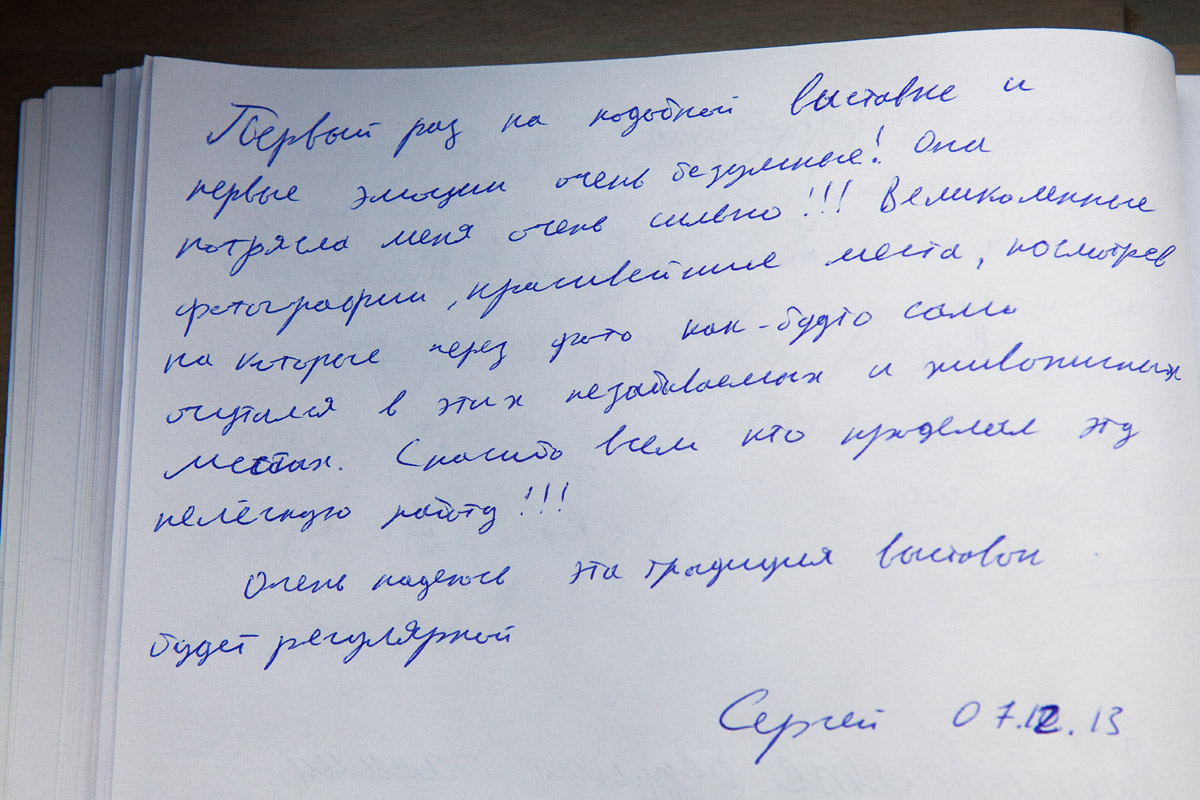 Первый раз на подобной выставке и
первые эмоции очень безумные! Она
потрясла меня очень сильно!!! Великолепные
фотографии, красивейшие места, посмотрев
на которые через фото как-будто сам
очутился в этих незабываемых и живописных
местах. Спасибо всем кто проделал эту
нелёгкую работу!!!
Очень надеюсь эта традиция выставок
будет регулярной
Сергей 07.12.13